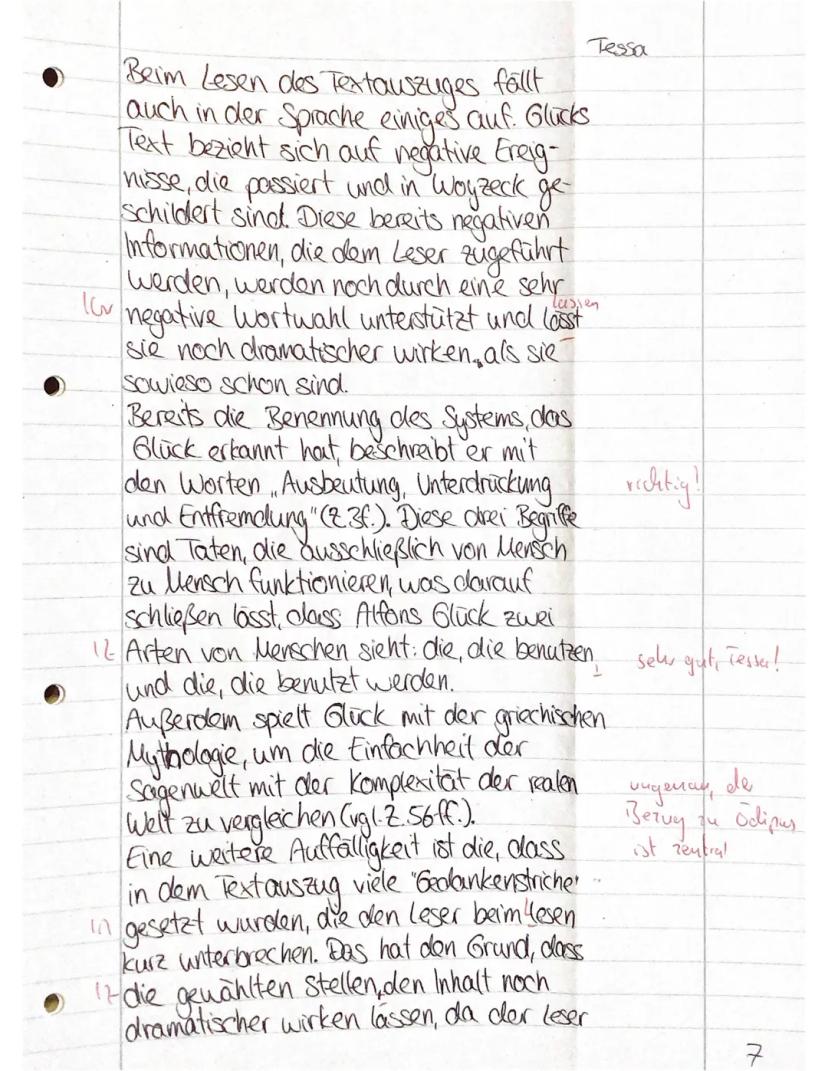 Tessa
Beim Lesen des Textauszuges fällt
auch in der Sprache einiges auf. Glücks
Text bezieht sich auf negative Ereig-
nisse, die passiert und in Woyzeck ge-
schildert sind. Diese bereits negativen
Informationen, die dem Leser zugeführt
werden, werden noch durch eine sehr
lassen
negative Wortwahl unterstützt und lässt
sie noch dramatischer wirken, als sie
sowieso schon sind.
Bereits die Benennung des Systems, das
Glück erkannt hat, beschreibt er mit
den Worten „Ausbeutung, Unterdrückung richtig!
und Entfremdung" (Z.3f.). Diese drei Begriffe
sind Taten, die ausschließlich von Mensch
zu Mensch funktionieren, was darauf
schließen lässt, dass Alfons Glück zwei
1Z Arten von Menschen sieht: die, die benutzen, sehr gut, Tessa!
und die, die benutzt werden.
Außerdem spielt Glück mit der griechischen
Mythologie, um die Einfachheit der
Sagenwelt mit der Komplexität der realen ungenau, de
Welt zu vergleichen (vgl. Z.56ff.). Bezug zu Ödipus
Eine weitere Auffälligkeit ist die, dass ist zentral
in dem Textauszug viele "Gedankenstriche"
gesetzt wurden, die den Leser beim Lesen
kurz unterbrechen. Das hat den Grund, dass
1Z die gewählten Stellen, den Inhalt noch
dramatischer wirken lassen, da der Leser
7